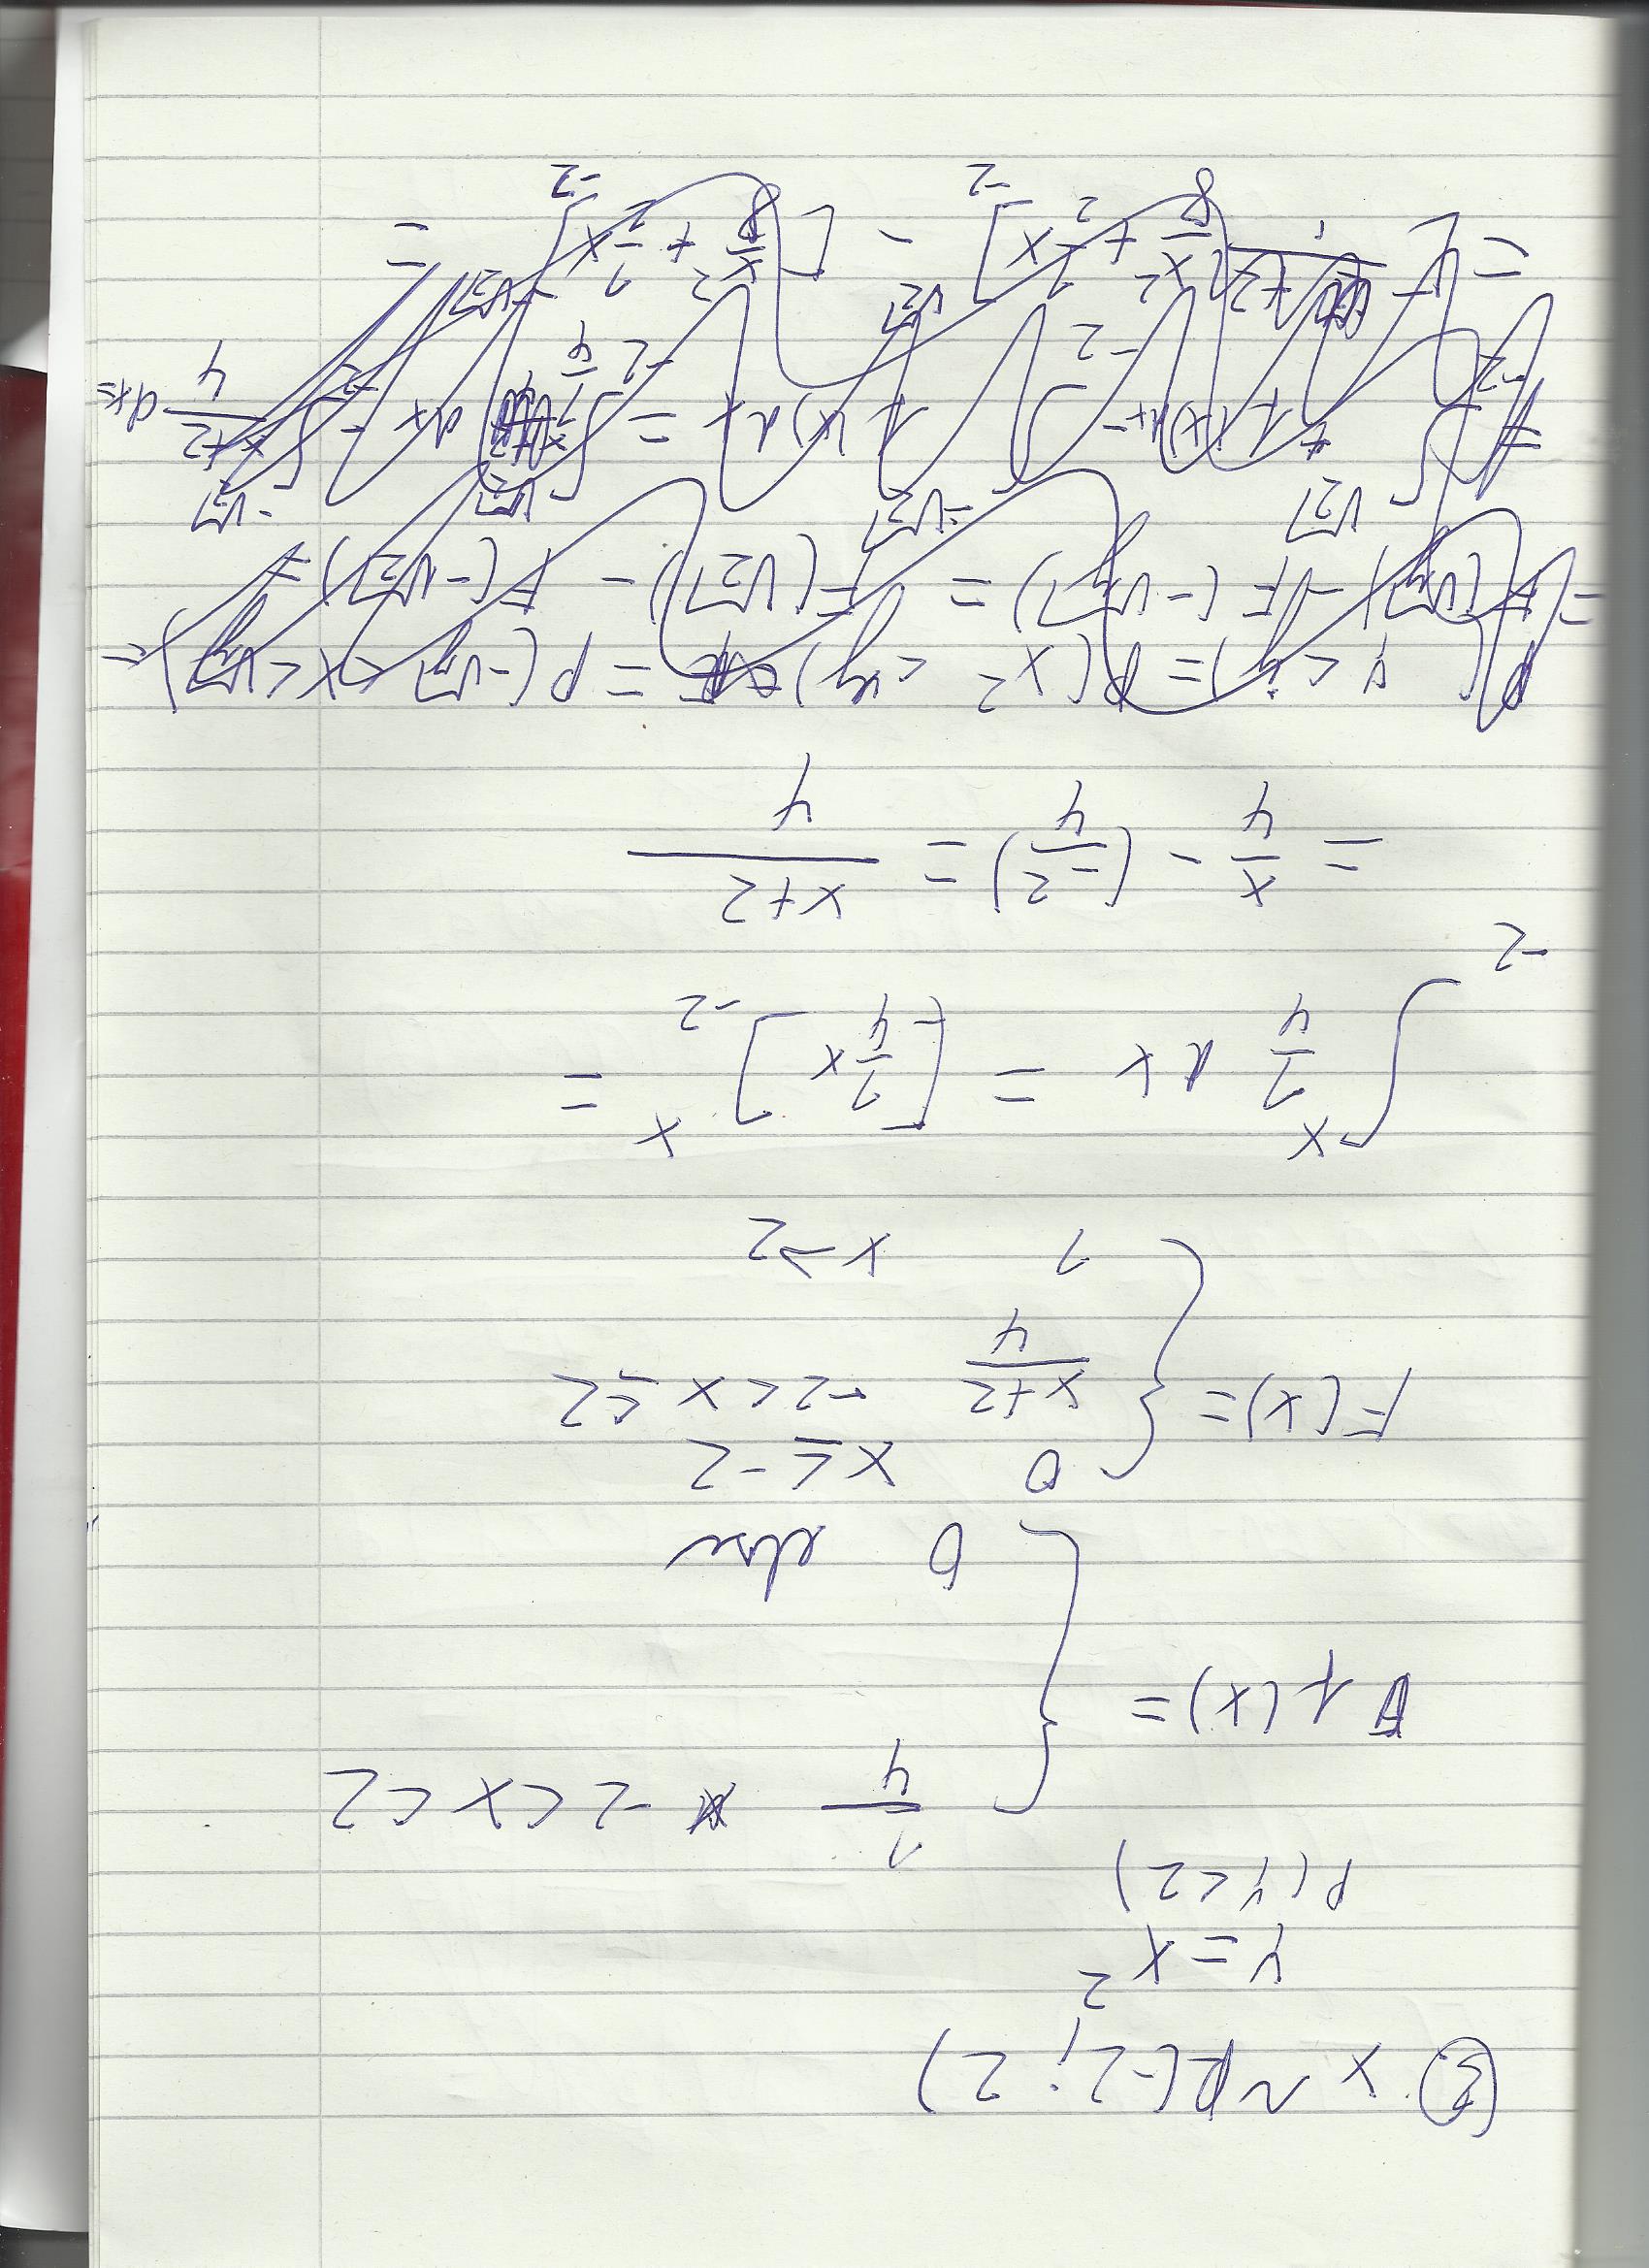 3. X ~ R(-2; 2)
Y = X²
P(Y < 2)
f(x) = { 1/4 -2 < x < 2
0 else
F(x) = { 0 x ≤ -2
x+2/4 -2 < x ≤ 2
1 x > 2
∫_{-2}^{x} 1/4 dx = [1/4 x]_{-2}^{x} =
= x/4 - (-2/4) = x+2/4
P(Y < y) = P(X² < y) = P(-√y < X < √y) =
= F(√y) - F(-√y) = F(√2) - F(-√2) =
= ∫_{-2}^{√2} f(x) dx - ∫_{-2}^{-√2} f(x) dx = ∫_{-2}^{√2} 1/4 dx - ∫_{-2}^{-√2} x+2/4 dx =
= [x²/8 + 1/2 x]_{-2}^{√2} - [x²/8 + 1/2 x]_{-2}^{-√2} =